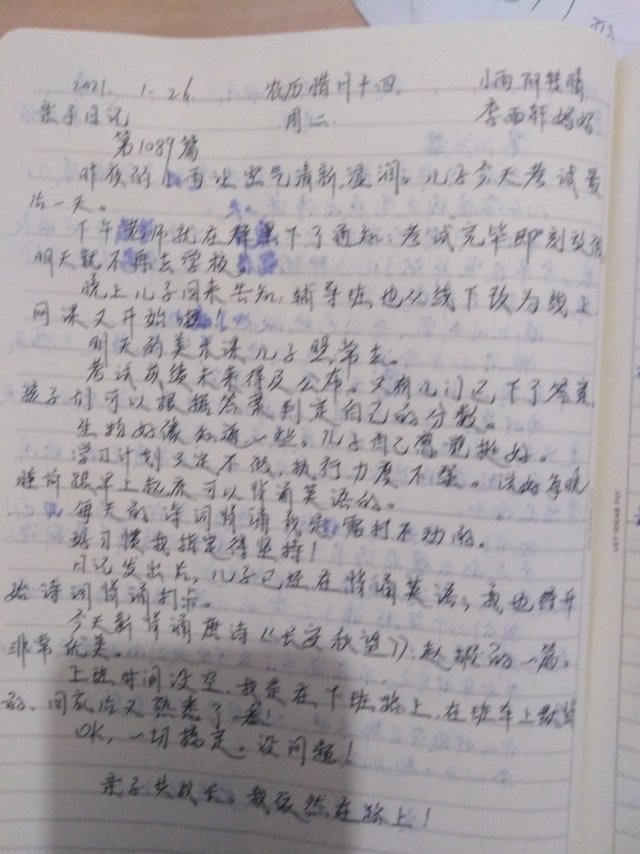 2021. 1. 26. 农历腊月十四. 小雨阴转晴
亲子日记 周二. 李雨轩妈妈
第1089篇
昨夜的小雨让空气清新,湿润。儿子今天考试最
后一天。
下午老师就在群里下了通知:考试完毕即刻放假
明天就不再去学校。
晚上儿子回来告知,辅导班也从线下改为线上
网课又开始啦!
明天的美术课儿子照常去。
考试成绩未来得及公布。只有几门已下了答案,
孩子们可以根据答案判定自己的分数。
生物好像知道一些,儿子自己感觉挺好。
学习计划只定不做,执行力度不强。说好每晚
睡前跟早上起床可以背诵英语的。
每天的诗词背诵我是雷打不动的。
好习惯我指定得坚持!
日记发出后,儿子已经在背诵英语,我也得开
始诗词背诵打卡。
今天新背诵唐诗《长安秋望》赵嘏的一篇。
非常优美。
上班时间没空,我是在下班路上,在班车上默背
的。回家后又熟悉了一卷!
OK,一切搞定。没问题!
亲子共成长,我依然在路上!